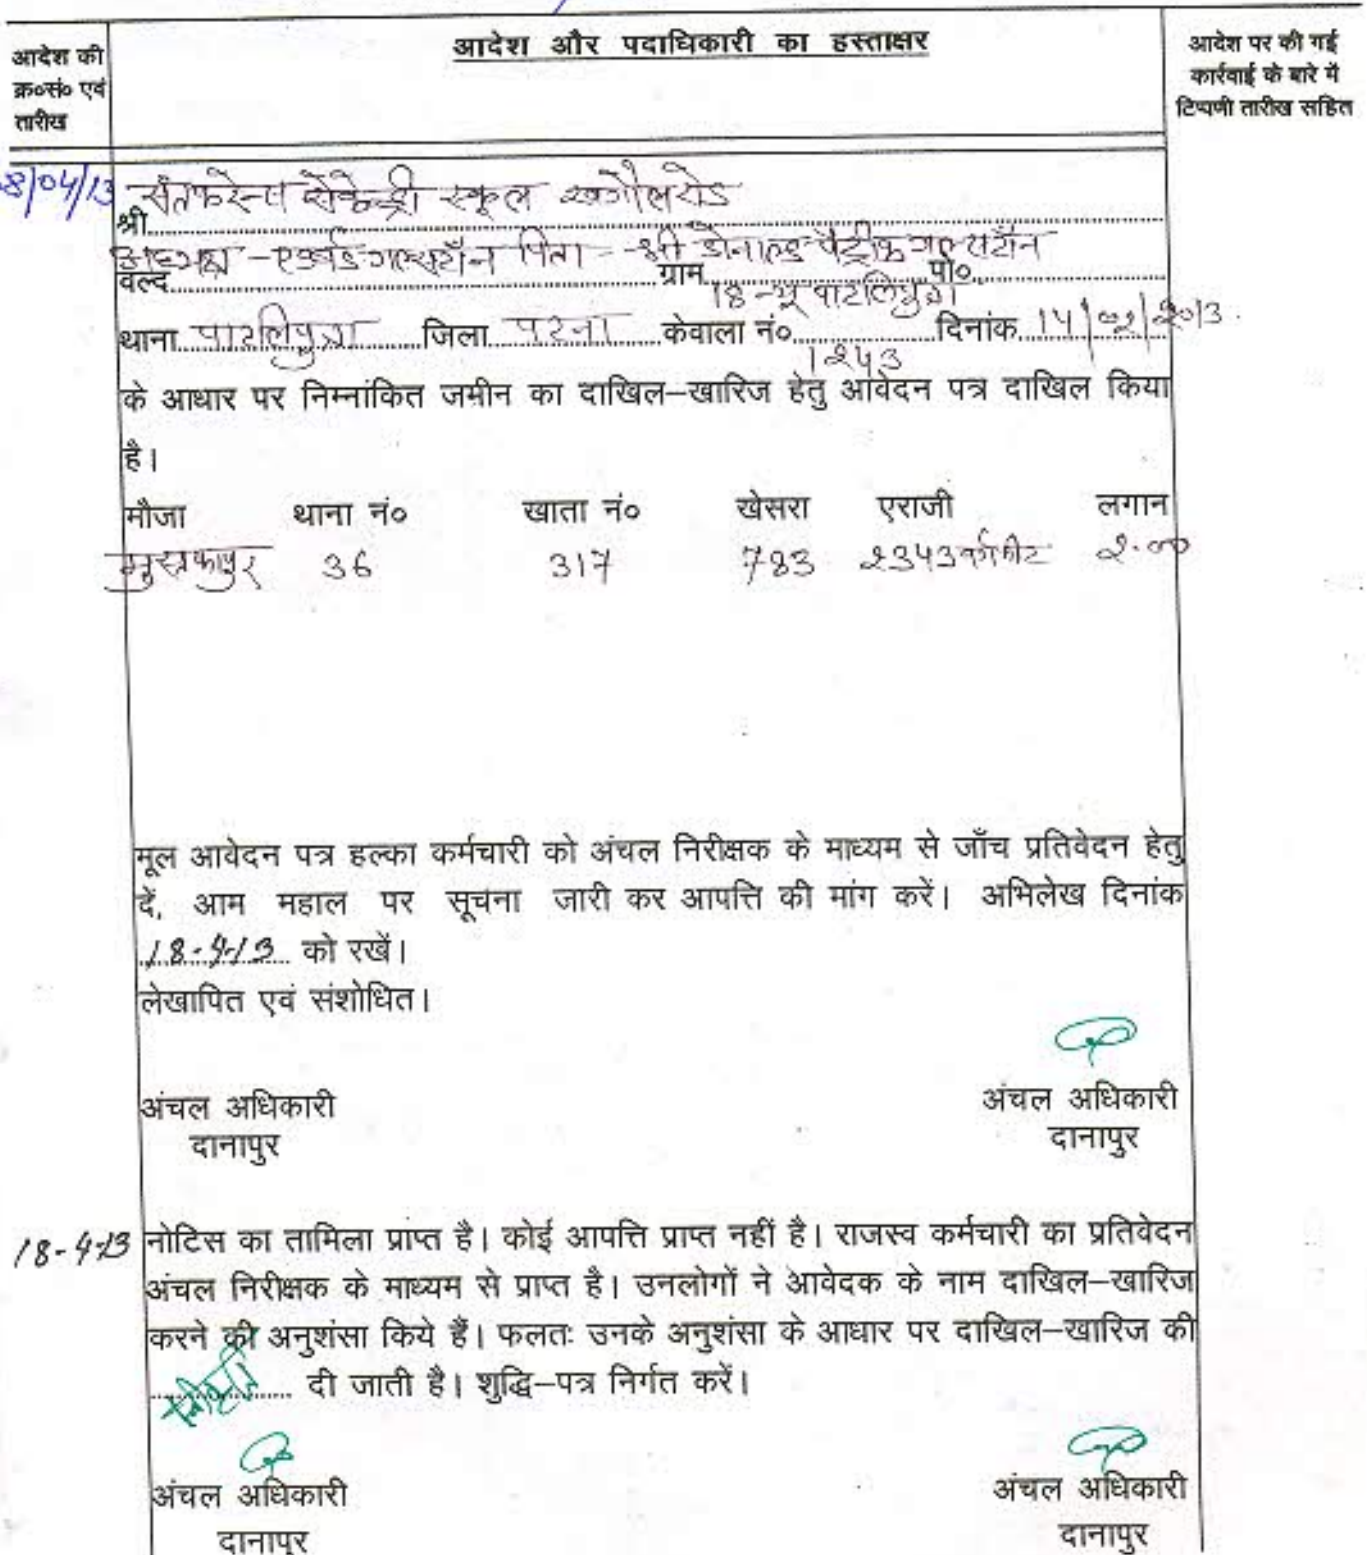 आदेश की
क्र०सं० एवं
तारीख
आदेश और पदाधिकारी का हस्ताक्षर
आदेश पर की गई
कार्रवाई के बारे में
टिप्पणी तारीख सहित
8/04/13
स्कूल खगौल रोड
श्री
अध्यक्ष - पिता - श्री डोनाल्ड पैट्रीक गल्सटॉन
वल्द ग्राम पो०
18 - पाटलिपुत्रा
थाना पाटलिपुत्रा जिला पटना केवाला नं० 1243 दिनांक 14/02/2013
के आधार पर निम्नांकित जमीन का दाखिल–खारिज हेतु आवेदन पत्र दाखिल किया
है।
मौजा थाना नं० खाता नं० खेसरा एराजी लगान
36 317 783 2343 2.00
मूल आवेदन पत्र हल्का कर्मचारी को अंचल निरीक्षक के माध्यम से जाँच प्रतिवेदन हेतु
दें, आम महाल पर सूचना जारी कर आपत्ति की मांग करें। अभिलेख दिनांक
18-4-13 को रखें।
लेखापित एवं संशोधित।
अंचल अधिकारी अंचल अधिकारी
दानापुर दानापुर
18-4-13 नोटिस का तामिला प्राप्त है। कोई आपत्ति प्राप्त नहीं है। राजस्व कर्मचारी का प्रतिवेदन
अंचल निरीक्षक के माध्यम से प्राप्त है। उनलोगों ने आवेदक के नाम दाखिल–खारिज
करने की अनुशंसा किये हैं। फलतः उनके अनुशंसा के आधार पर दाखिल–खारिज की
दी जाती है। शुद्धि–पत्र निर्गत करें।
अंचल अधिकारी अंचल अधिकारी
दानापुर दानापुर